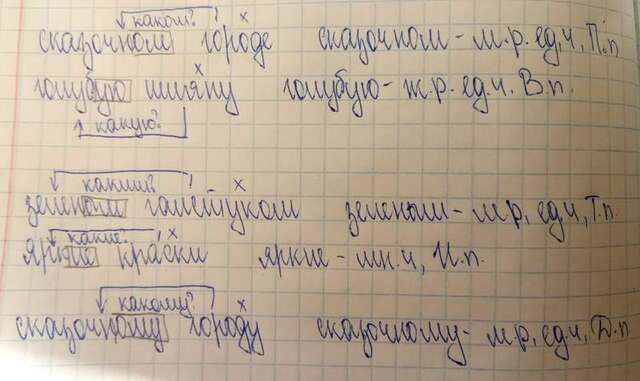 каком?
сказочном городе сказочном - м.р. ед.ч, П.п
голубую шляпу голубую - ж.р. ед.ч. В.п.
какую?
каким?
зеленым галстуком зеленым - м.р, ед.ч, Т.п.
какие?
яркие краски яркие - мн.ч, И.п.
какому?
сказочному городу сказочному - м.р, ед.ч, Д.п